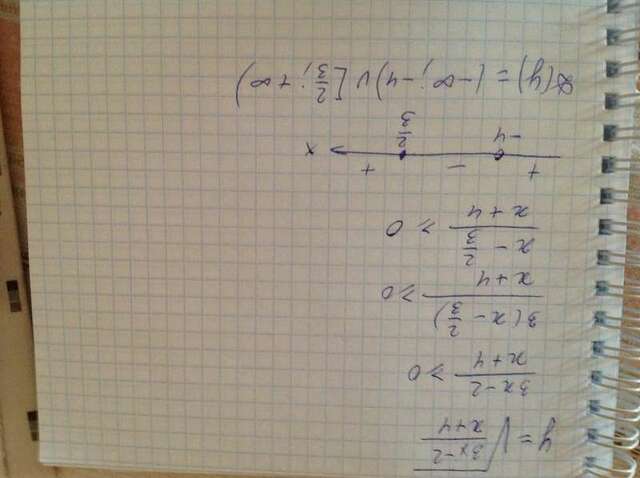 y = √(3x-2)/(x+4)
(3x-2)/(x+4) ≥ 0
3(x - 2/3)/(x+4) ≥ 0
(x - 2/3)/(x+4) ≥ 0
+ - +
-4 2/3 x
D(y) = (-∞; -4) ∪ [2/3; +∞)